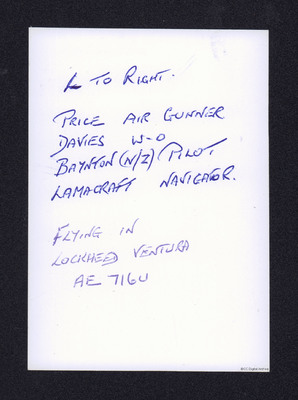 L TO RIGHT.
PRICE AIR GUNNER
DAVIES W-O
BAYNTON (N/Z) PILOT
LAMACRAFT NAVIGATOR.
FLYING IN
LOCKHEED VENTURA
AE 716U
IBCC Digital Archive